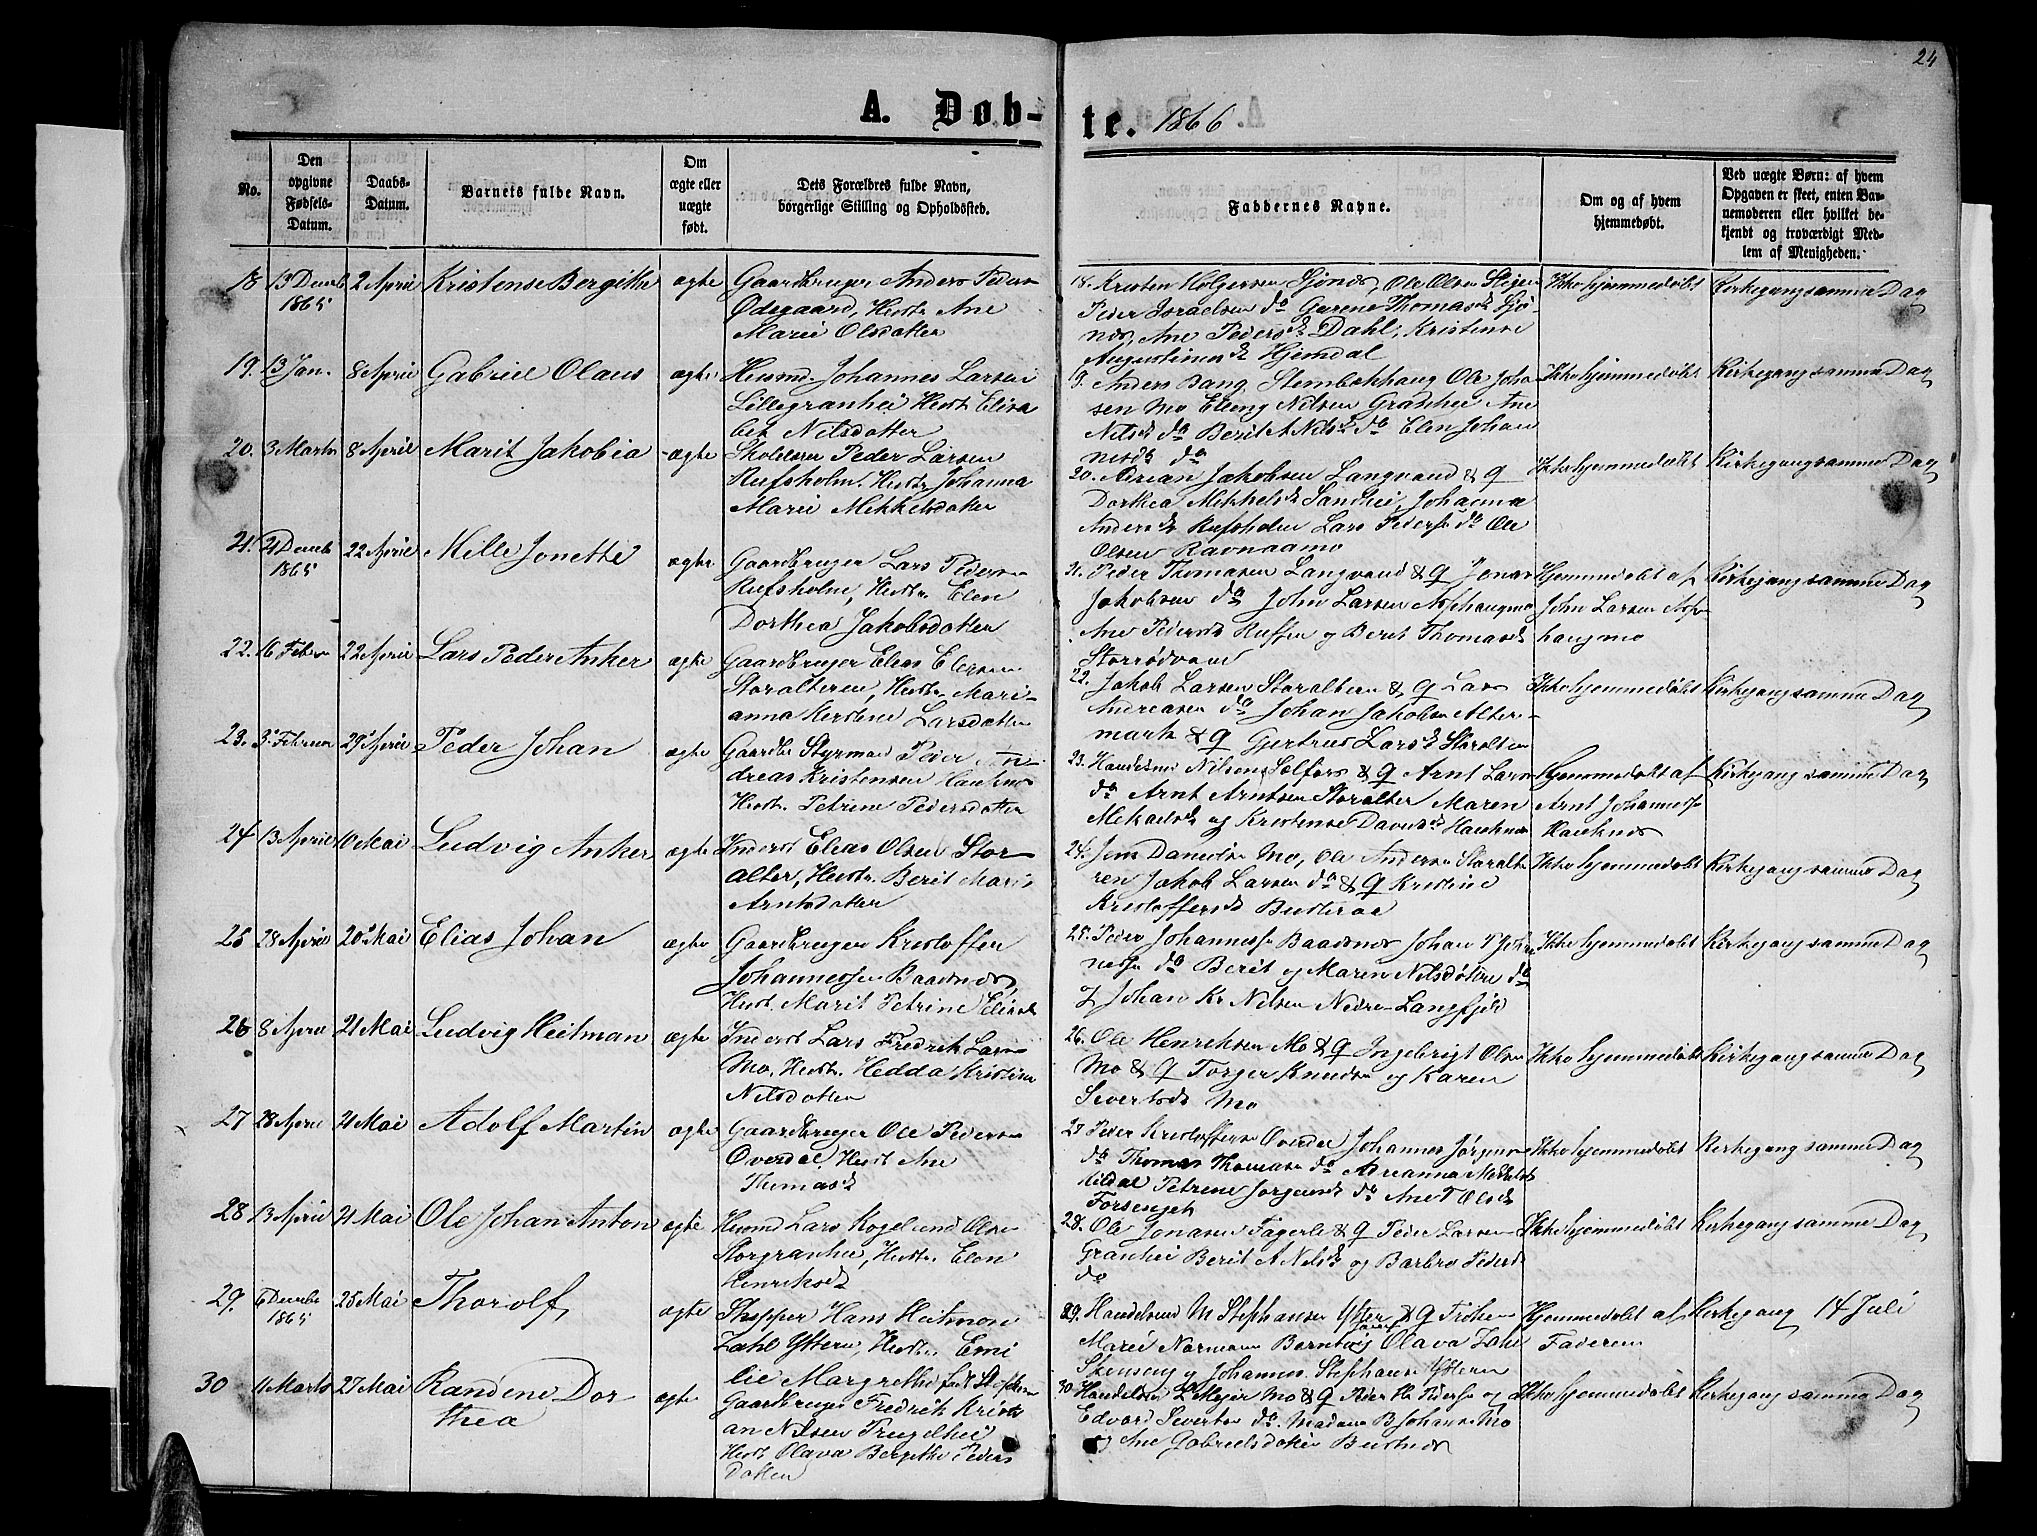 24
A. Døb-
te. 1866
No.
Den opgivne Fødsels-Datum.
Daabs-Datum.
Barnets fulde Navn.
Om ægte eller uægte født.
Dets Forældres fulde Navn, borgerlige Stilling og Opholdssted.
Faddernes Navne.
Om og af hvem hjemmedøbt.
Ved uægte Børn: af hvem Opgaven er skeet, enten Barnemoderen eller hvilket bekjendt og troværdigt Medlem af Menigheden.
18 13 Decmb 1865 2 April Kristense Bergithe ægte
Gaardbruger Anders Peders
Ødegaard, Hustr. Ane
Marie Olsdatter
18. Kristen Holgersen Sjonds, Ole Olsen Steien
Peder Israelsen do Gurene Thomasd. Sjo-
nds, Ane Pedersd. Dahl, Kristense
Augustinusd. Hjemdal
Ikke hjemmedøbt
Kirkegang samme Dag
19. 13 Jan. 8 April Gabriel Olaus ægte
Husmd. Johannes Larsen
Lillegranhei Hustr. Elisa
bet Nilsdatter
19. Anders Bang Stenbækhaug Ole Joha-
sen Mo Elling Nilsen Granhei Ane
Nilsd. do Berit A Nilsd. do Elen Johan
nesd. do
Ikke hjemmedøbt
Kirkegang samme Dag
20. 3 Marts 8 April Marit Jakobia ægte
Skolelærer Peder Larsen
Rufsholm. Hustr. Johanna
Marie Mikkelsdatter
20. Adrian Jakobsen Langvand & Q
Dorthea Mikkelsd. Sandhei, Johanna
Andersd. Rufsholm Lars Peders. do Ole
Olsen Ravnaamo
Ikke hjemmedøbt
Kirkegang samme Dag
21. 21 Decmb 1865 22 April Mille Jonette ægte
Gaardbruger Lars Peders
Rufsholm, Hustr. Elen
Dorthea Jakobsdatter
21. Peder Thomasen Langvand & Q Jonas
Jakobsen do John Larsen Asphaugmo
Ane Pedersd. Ruffen og Berit Thomasd.
Storrødvand
Hjemmedøbt af
John Larsen Asp-
haugmo
Kirkegang samme Dag
22. 16 Febru 22 April Lars Peder Anker ægte
Gaardbruger Elias Eliesen
Storalteren, Hustr. Mari-
anna Kerstine Larsdatter
22. Jakob Larsen Storalteren & Q Lars
Andreasen do Johan Jakobsen Alter-
mark & Q Gjertrud Larsd. Storalteren
Ikke hjemmedøbt
Kirkegang samme Dag
23. 3. Februar 29 April Peder Johan ægte
Gaardbr Styrmand Peder An-
dreas Kristensen Hauknes
Hustr. Petrine Pedersdatter
23. Handelsmd Nilsen Selfors & Q Arnt Larsen
do Arnt Arntsen Storalter Maren
Mikaelsd. og Kristense Davidsd. Hauknes
Hjemmedøbt af
Arnt Johannes.
Hauknes
Kirkegang samme Dag
24 13 April 10 Mai Ludvig Anker ægte
Inderst Elias Olsen Stor-
alter, Hustr. Berit Maria
Arntsdatter
24. Jens Danielsen Mo, Ole Andersen Storalte
ren Jakob Larsen do & Q Kristine
Kristoffersd. Busteraa
Ikke hjemmedøbt
Kirkegang samme Dag
25 28 April 20 Mai Elias Johan ægte
Gaardbruger Kristoffer
Johannessen Baadsnes,
Hustr. Marit Petrine Eliasd.
25. Peder Johanness. Baadsnes Johan P Johan
ness. do Berit og Maren Nilsdøttre do
og Johan Kr Nilsen Nedre Langfjeld
Ikke hjemmedøbt
Kirkegang samme Dag
26 8 April 21 Mai Ludvig Heitman ægte
Inderst Lars Fredrik Larsen
Mo, Hustr. Hedda Kristine
Nilsdatter
26. Ole Henriksen Mo & Q Ingebrigt Olsen
Mo & Q Torger Knudsen og Karen
Sivertsd. Mo
Ikke hjemmedøbt
Kirkegang samme Dag
27 28 April 21 Mai Adolf Martin ægte
Gaardbruger Ole Pedersen
Overdal, Hustr. Ane
Thomasd.
27 Peder Kristoffersen Overdal Johannes Jørgens
do Thomas Thomasen do Adrianna Mikkelsd.
Petrine Jørgensd. do Ane P Olsd.
Forsenget
Ikke hjemmedøbt
Kirkegang samme Dag
28 13 April 21 Mai Ole Johan Anton ægte
Husmd Lars Rogelund Olsen
Storgranhei, Hustr. Elen
Henriksd.
28. Ole Jonasen Fagerli & Q Peder Larsen
Granhei Berit A Nilsd. og Barbro Pedersd.
do
Ikke hjemmedøbt
Kirkegang samme Dag
29. 6 Decmbr 1865 25 Mai Thorolf ægte
Skipper Hans Heitman
Zahl Yttern, Hustr. Emi
lie Margrethe født Stephansen
29. Handelsmd M Stephansen Ytter & Q Frøken
Marie Normann Olava Zahl
og Johannes Stephansen Yttern
Hjemmedøbt af
Faderen
Kirkegang 14 Juli
30 11 Marts 27 Mai Randine Dor
thea ægte
Gaardbruger Fredrik Kristi
an Nilsen Fugelhei
Hustr Olava Bergithe Peders
datter
30. Handelsm L Meyer Mo & Q Peder Kr Peders. og
Edvard Sivertsen do. Madam B Johansen Mo
og Ane Gabrielsdatter Bustnes
Ikke hjemmedøbt
Kirkegang samme Dag